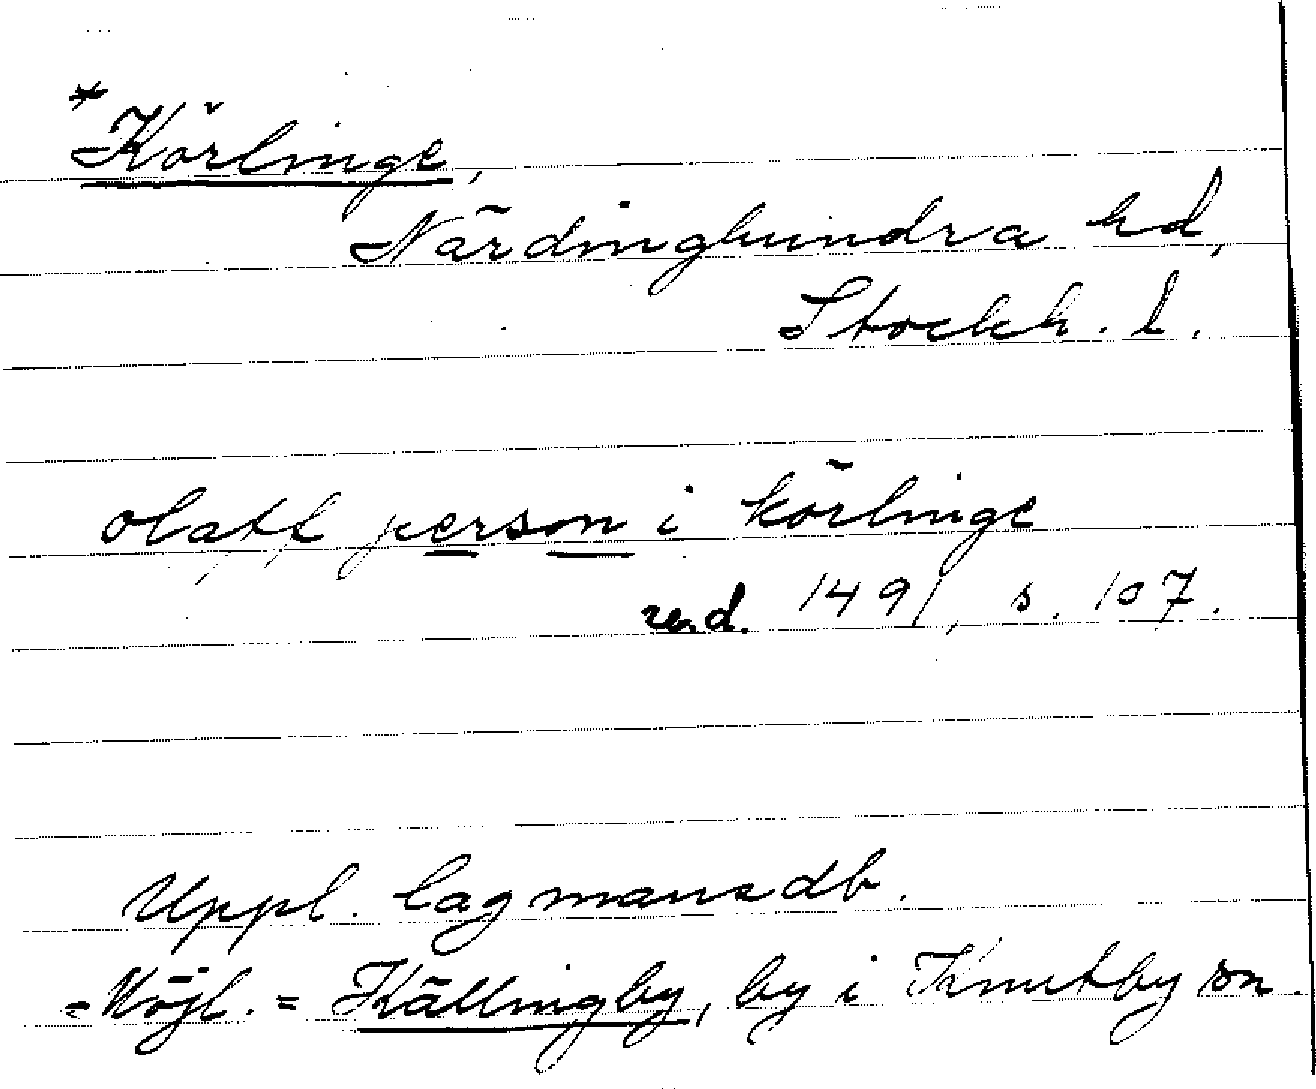 *Körlinge,
Närdinghundra hd,
Stockh. l.
olaff person i körlinge
1491, s. 107.
Uppl. lagmansdb.
=Möjl. = Källingby, by i Knutby sn.